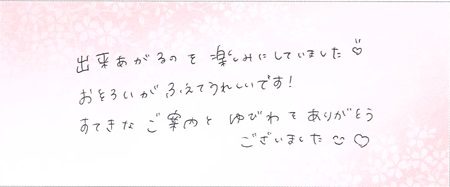 出来あがるのを楽しみにしていました
おそろいがふえてうれしいです!
すてきなご案内とゆびわをありがとう
ございました♡